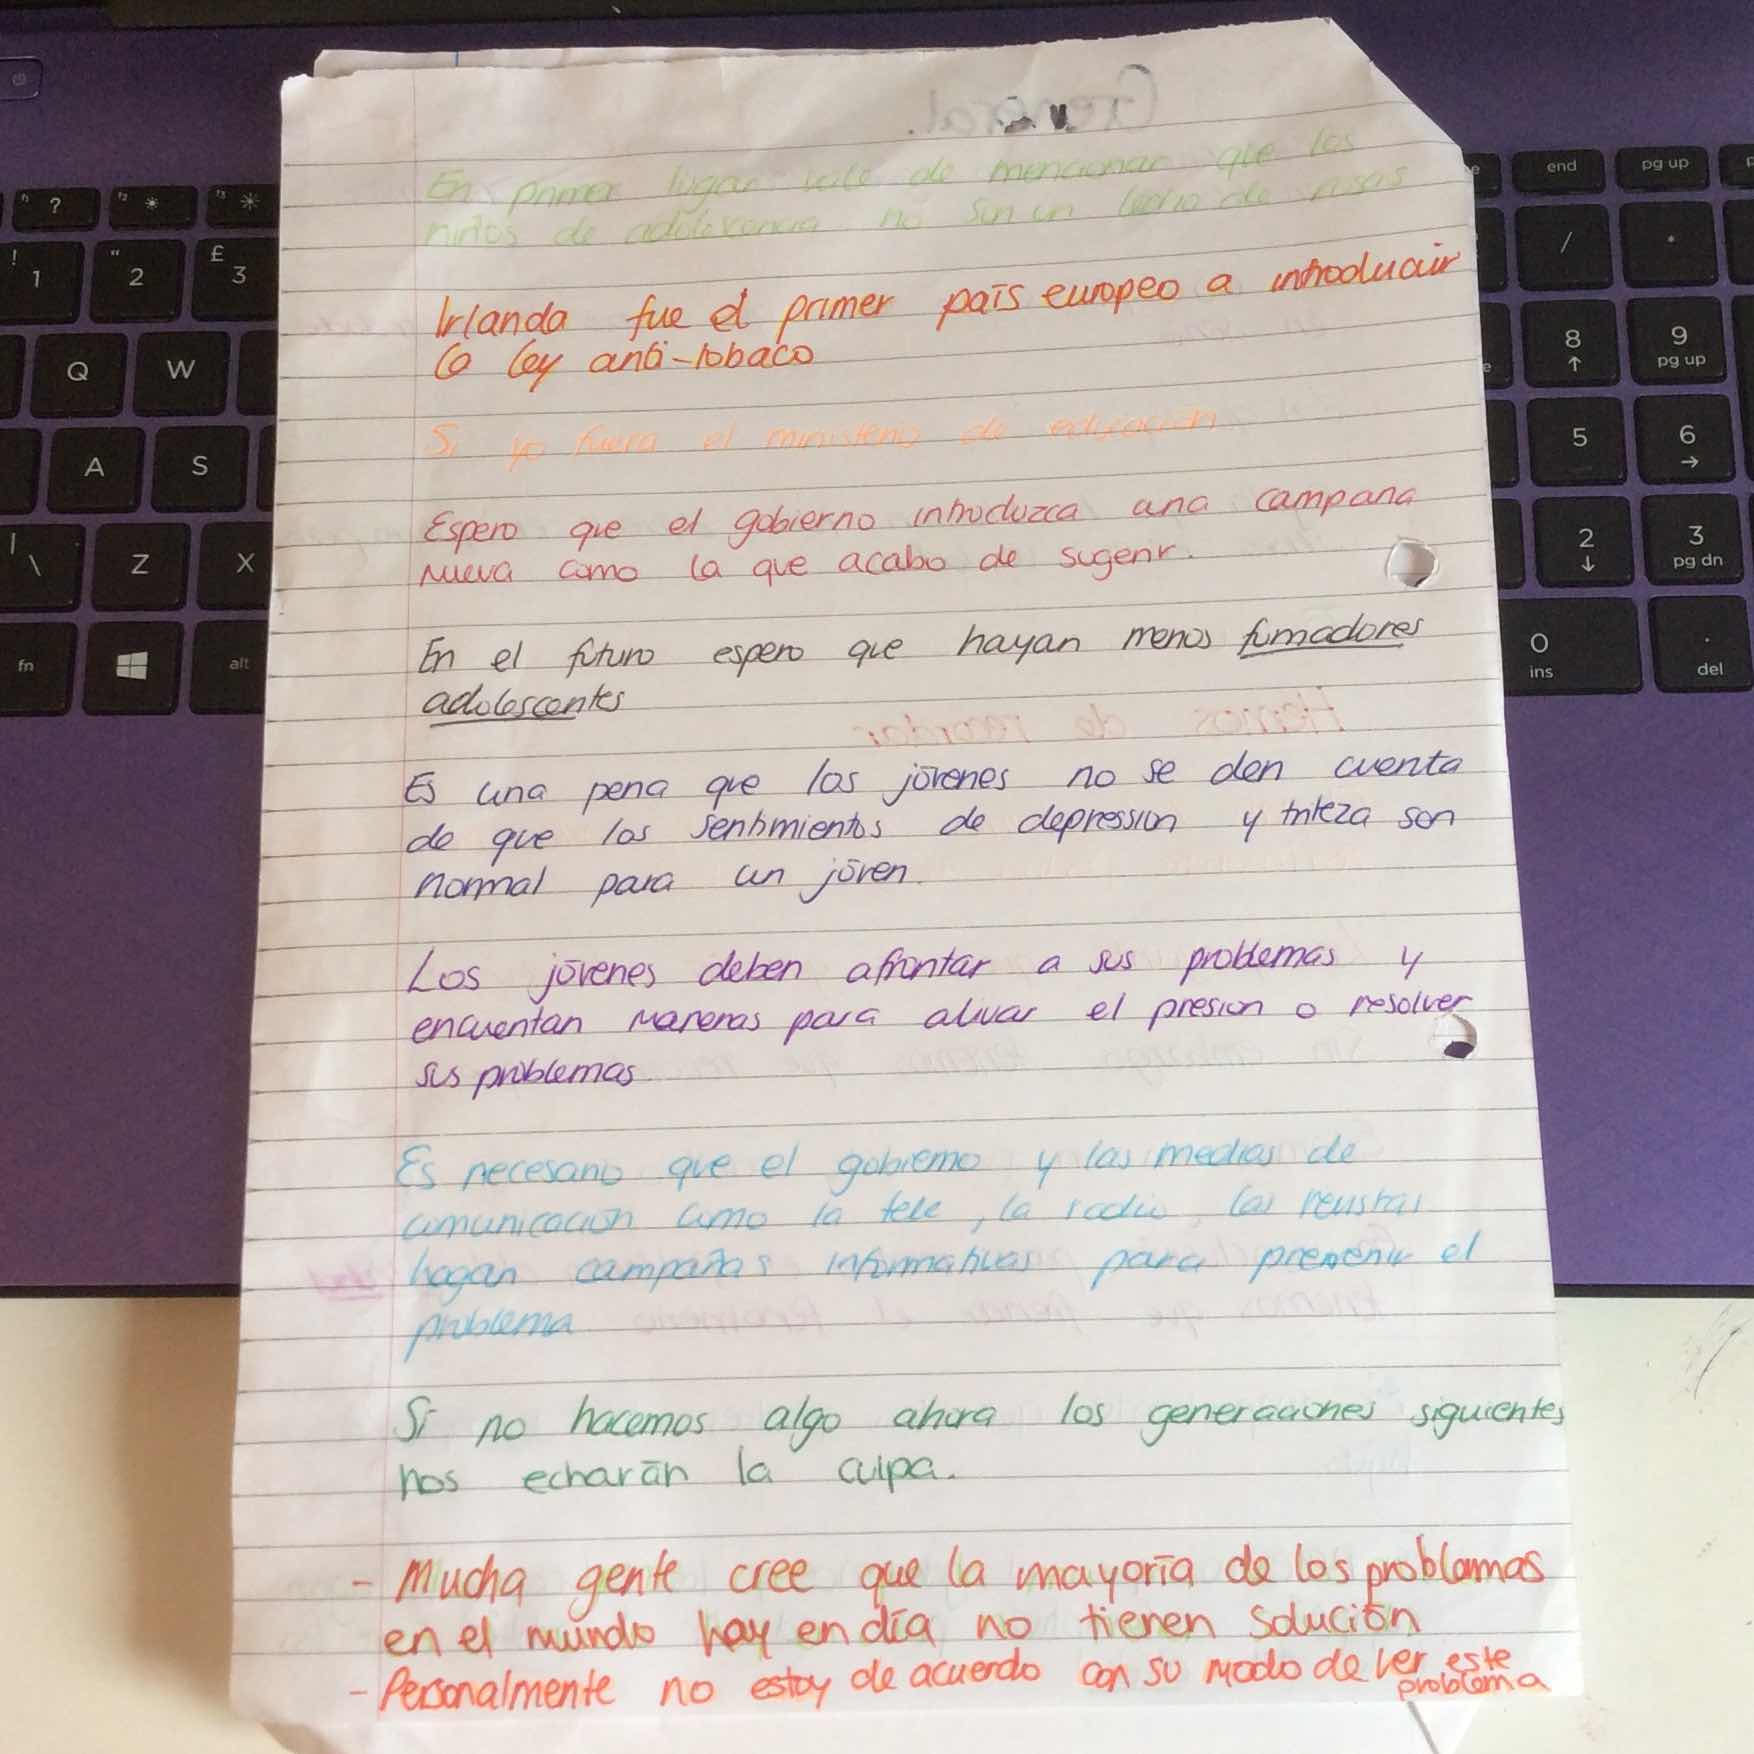 En primer lugar vale de mencionar que los
niños de adolescencia no son un lecho de rosas
Irlanda fue el primer país europeo a introducuir
la ley anti-tobaco
Si yo fuera el ministerio de educación
Espero que el gobierno introduzca una campana
nueva como la que acabo de sugerir.
En el futuro espero que hayan menos fumadores
adolescentes
Es una pena que los jóvenes no se den cuenta
de que los sentimientos de depression y triteza son
normal para un jóven.
Los jóvenes deben afrontar a sus problemas y
encuentan maneras para alivar el presion o resolver
sus problemas.
Es necesario que el gobierno y las medias de
comunicación como la tele, la radio, las revistas
hagan campañas informativas para prevenir el
problema
Si no hacemos algo ahora los generaciones siguientes
nos echarán la culpa.
- Mucha gente cree que la mayoría de los problemas
en el mundo hoy en día no tienen solución
- Personalmente no estoy de acuerdo con su modo de ver este
problema
? " * *
! 1 " 2 £ 3
Q W
A S
| \ Z X
fn alt
end pg up
/ *
8 ↑ 9 pg up
5 6 →
2 ↓ 3 pg dn
0 ins . del